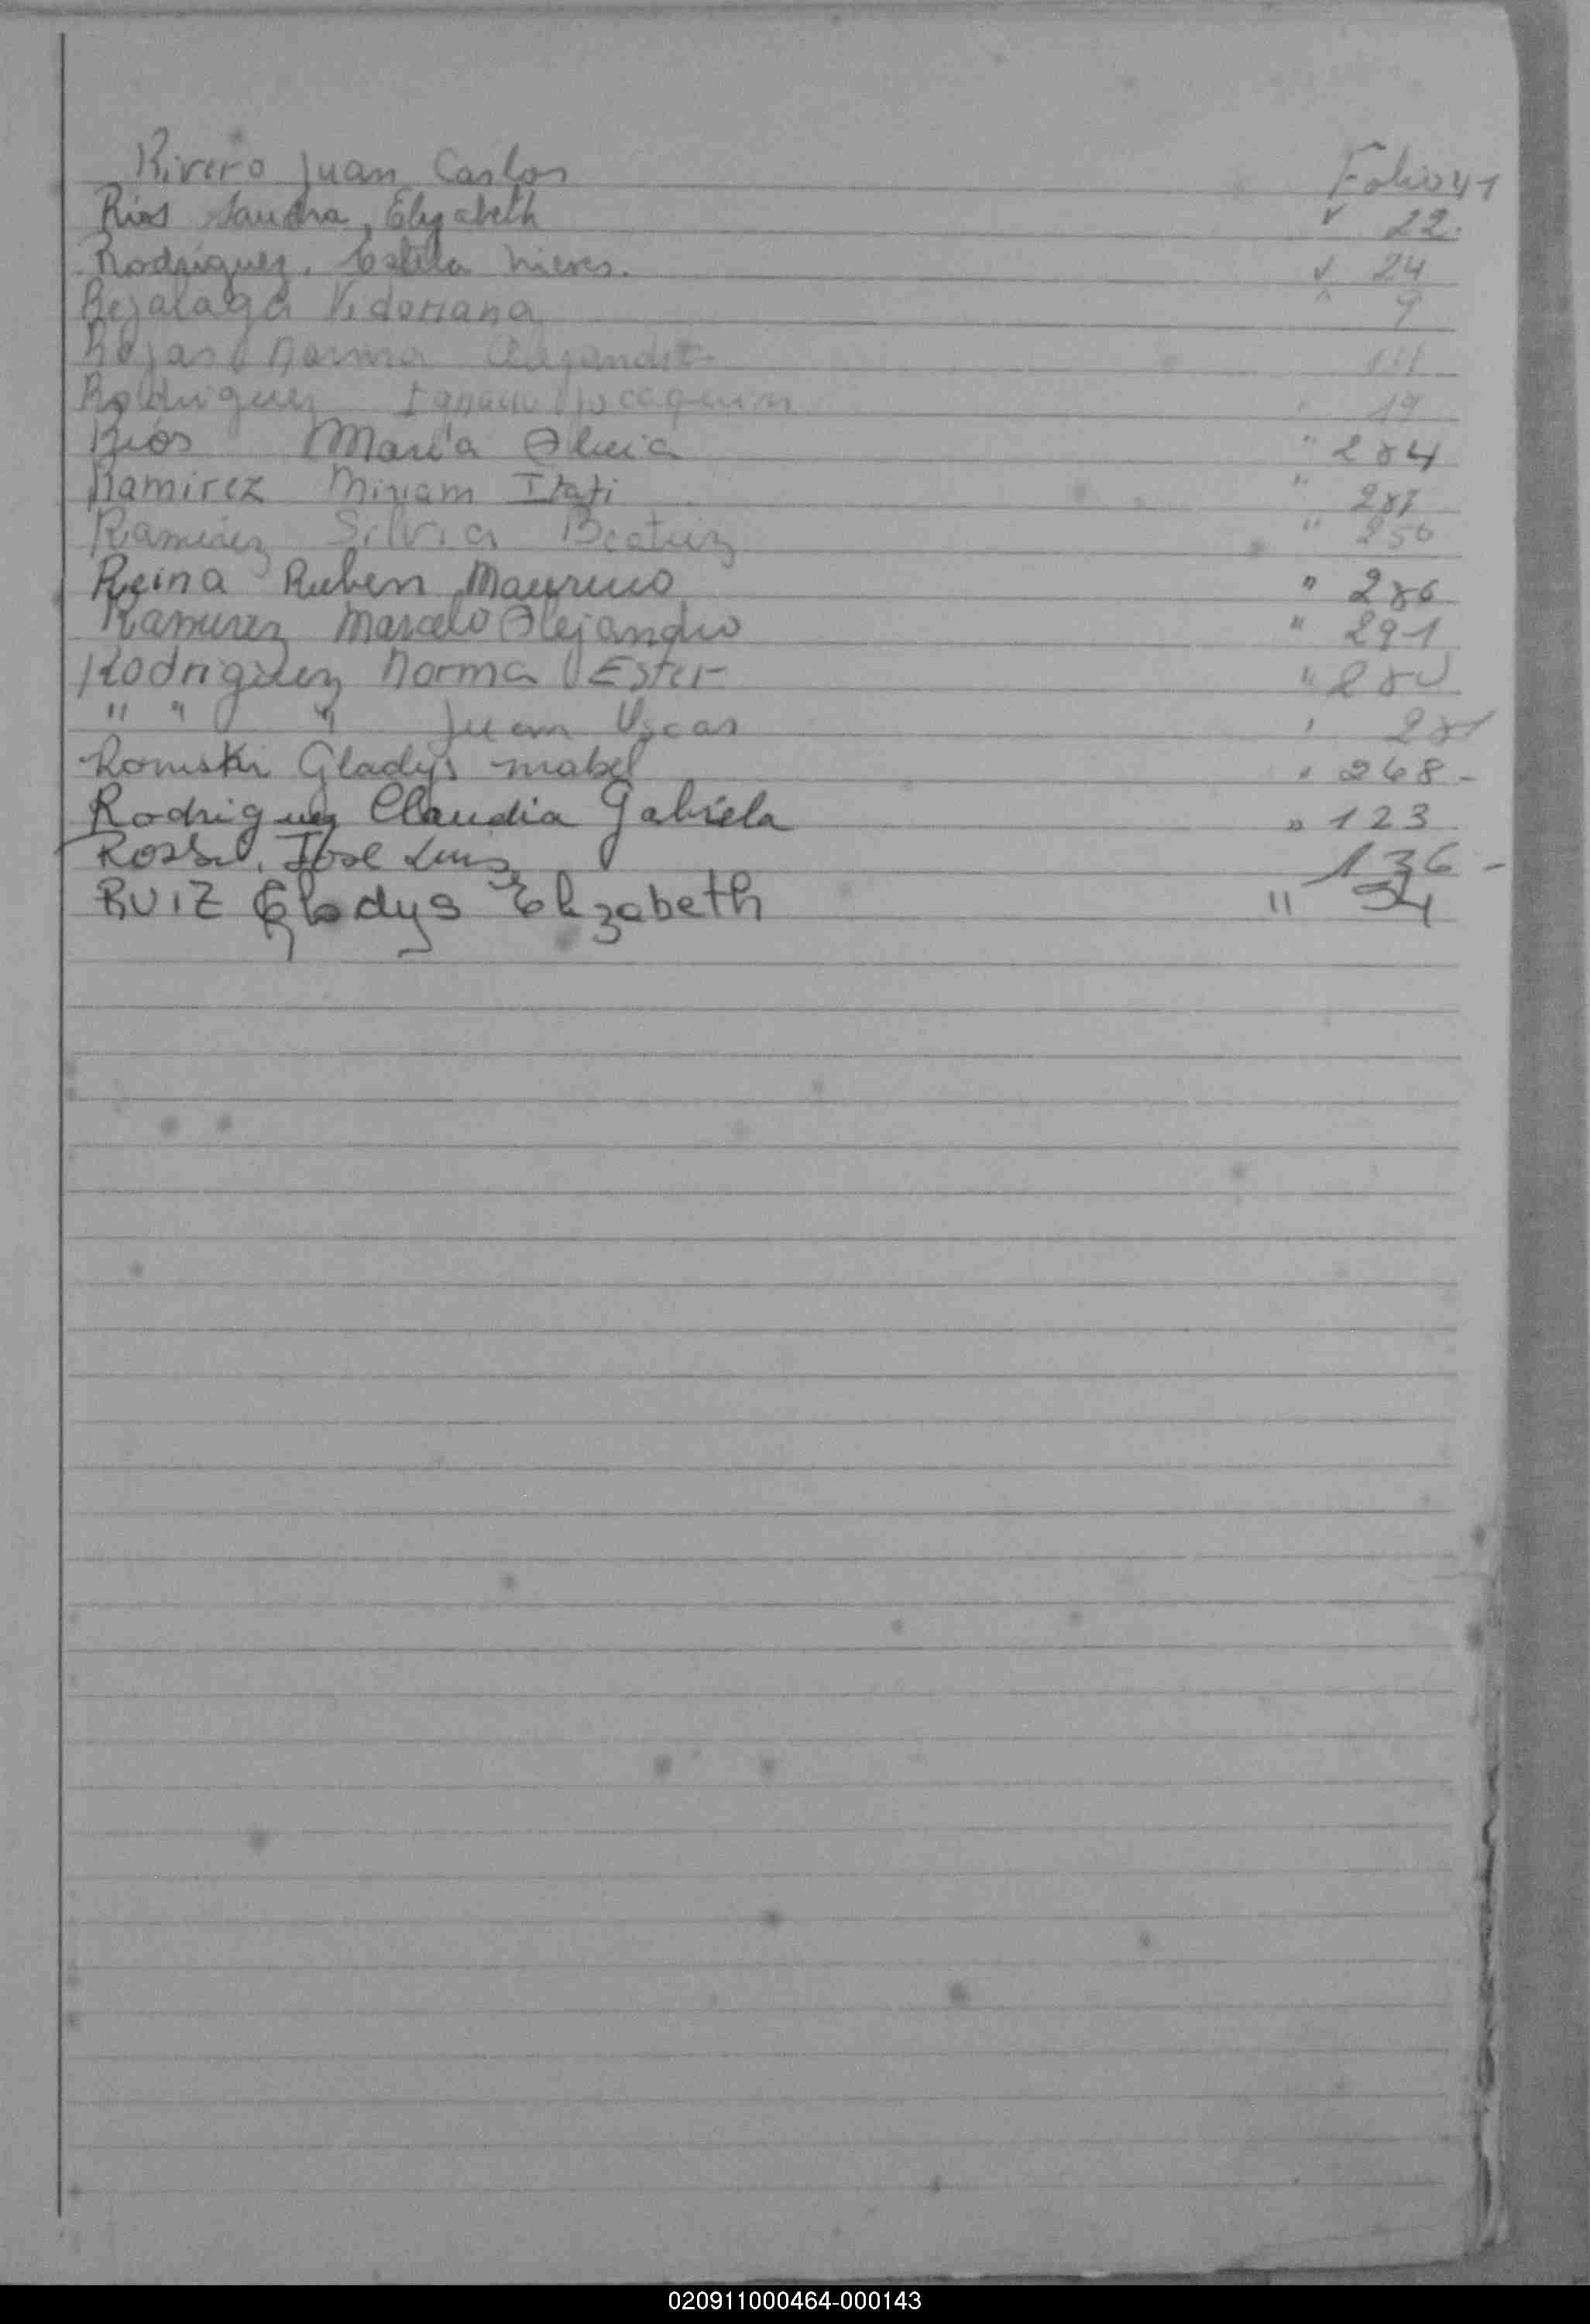 Rivero Juan Carlos Folio 41
Rios Sandra, Elizabeth " 22.
Rodriguez. Estela nieves. " 24
Bejaraga Vidoriana " 9
Rojas norma Alejandra 141
Rodriguez Ignacio Joaquin " 19
Rios Maria Alicia " 284
Ramirez Miriam Itati " 287
Ramirez Silvia Beatriz " 250
Reina Ruben Mauricio " 286
Ramirez Marcelo Alejandro " 291
Rodriguez Norma Ester " 280
" " " Juan Oscar " 281
Romski Gladys mabel " 268-
Rodriguez Claudia Gabriela " 123
Rossi, Jose Luis 136-
RUIZ Gladys Elizabeth " 34
020911000464-000143